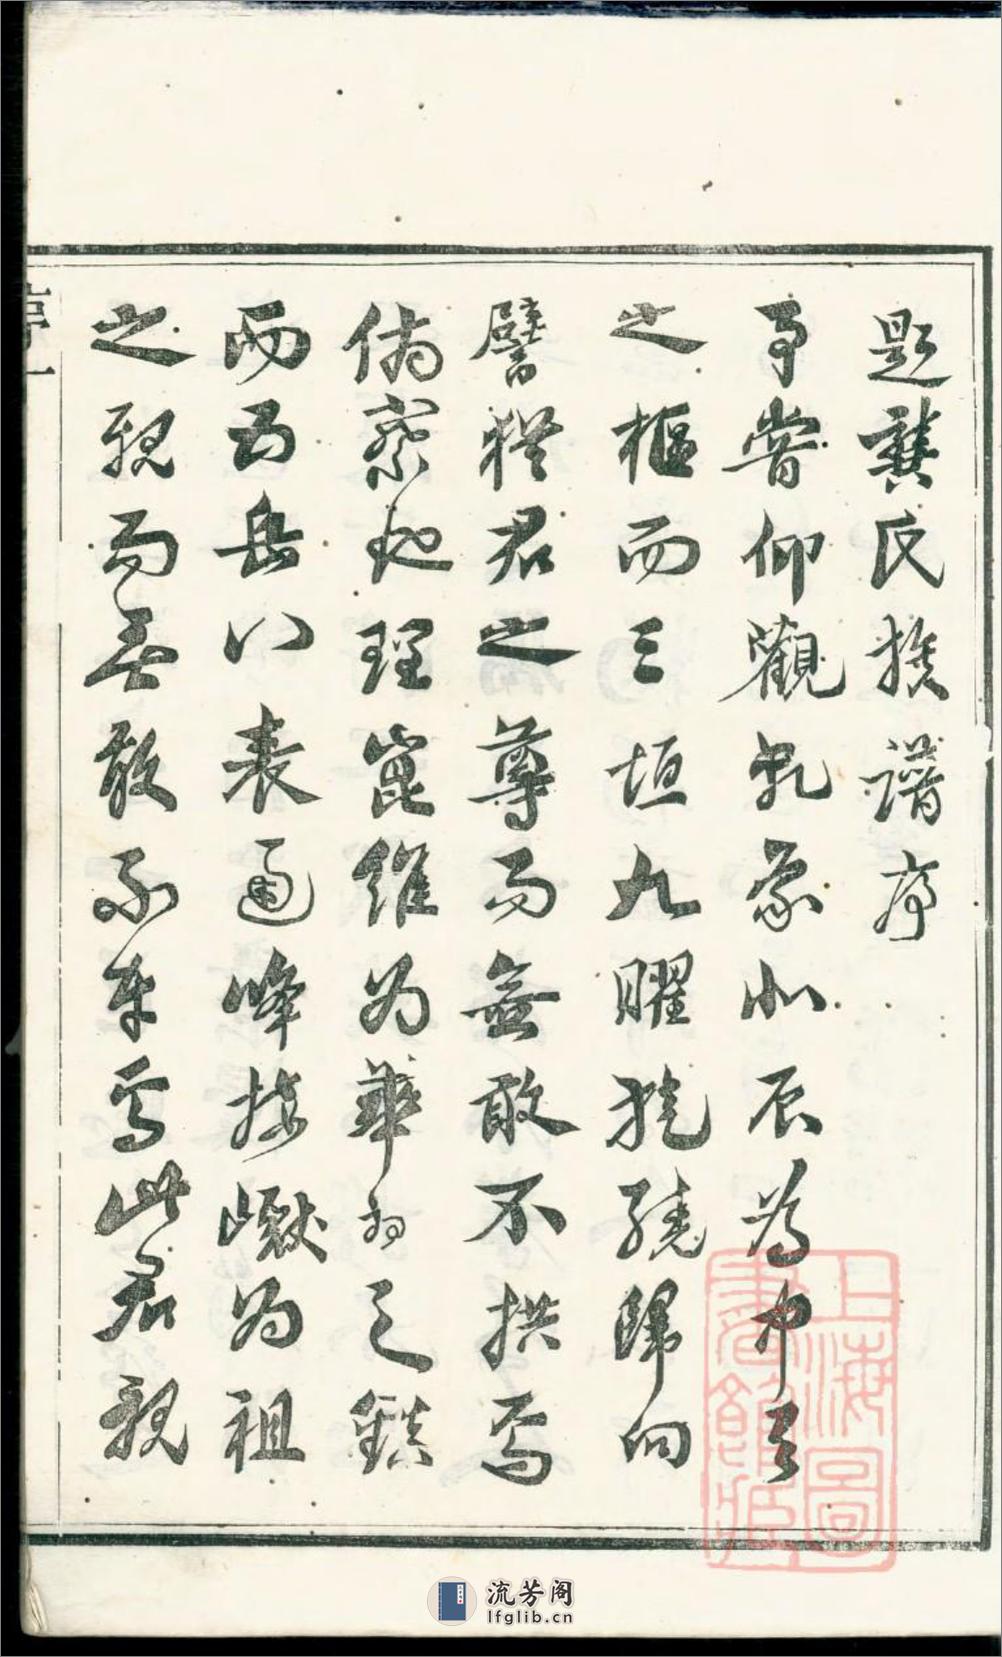 題龔氏族譜序
予嘗仰觀乾象北辰為中天
之樞而三垣九曜旋繞歸向
譬猶君之尊而無敢不拱焉
俯察地理崑崙為華夷之鎮
而五岳八表通峰接巘為祖
之親而無敢不本焉此君親
序一
上海圖書館藏
流芳阁
lfglib.cn